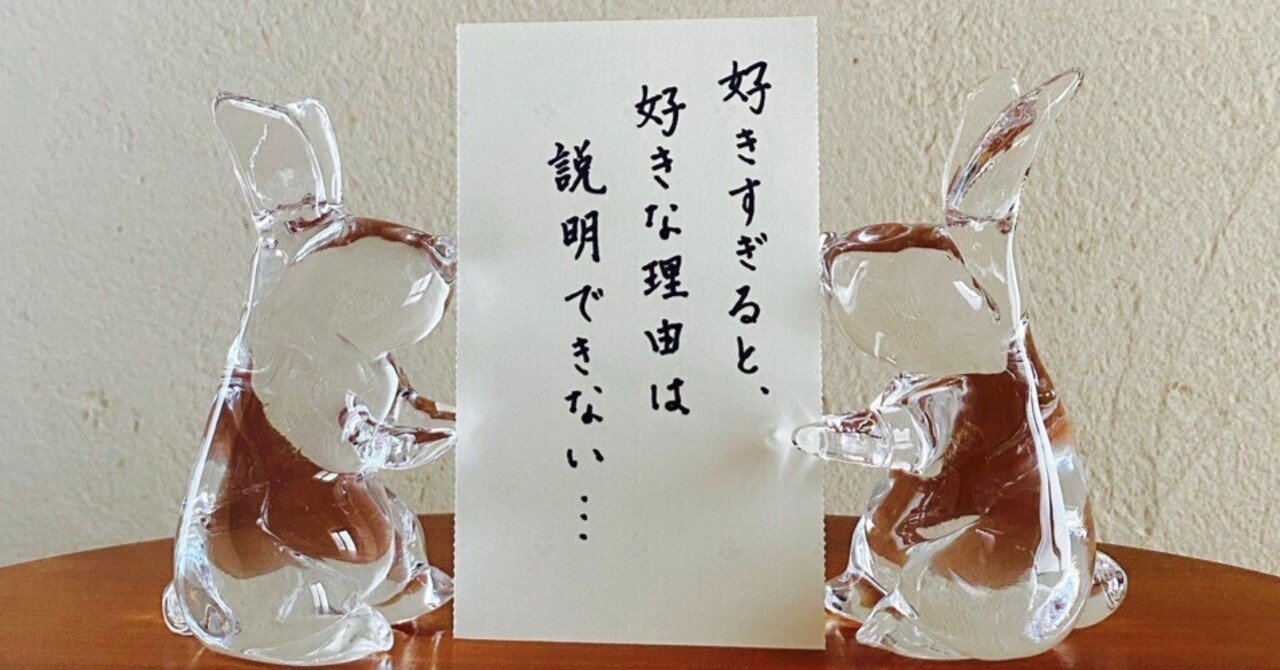 好きすぎると、
好きな理由は
説明できない…